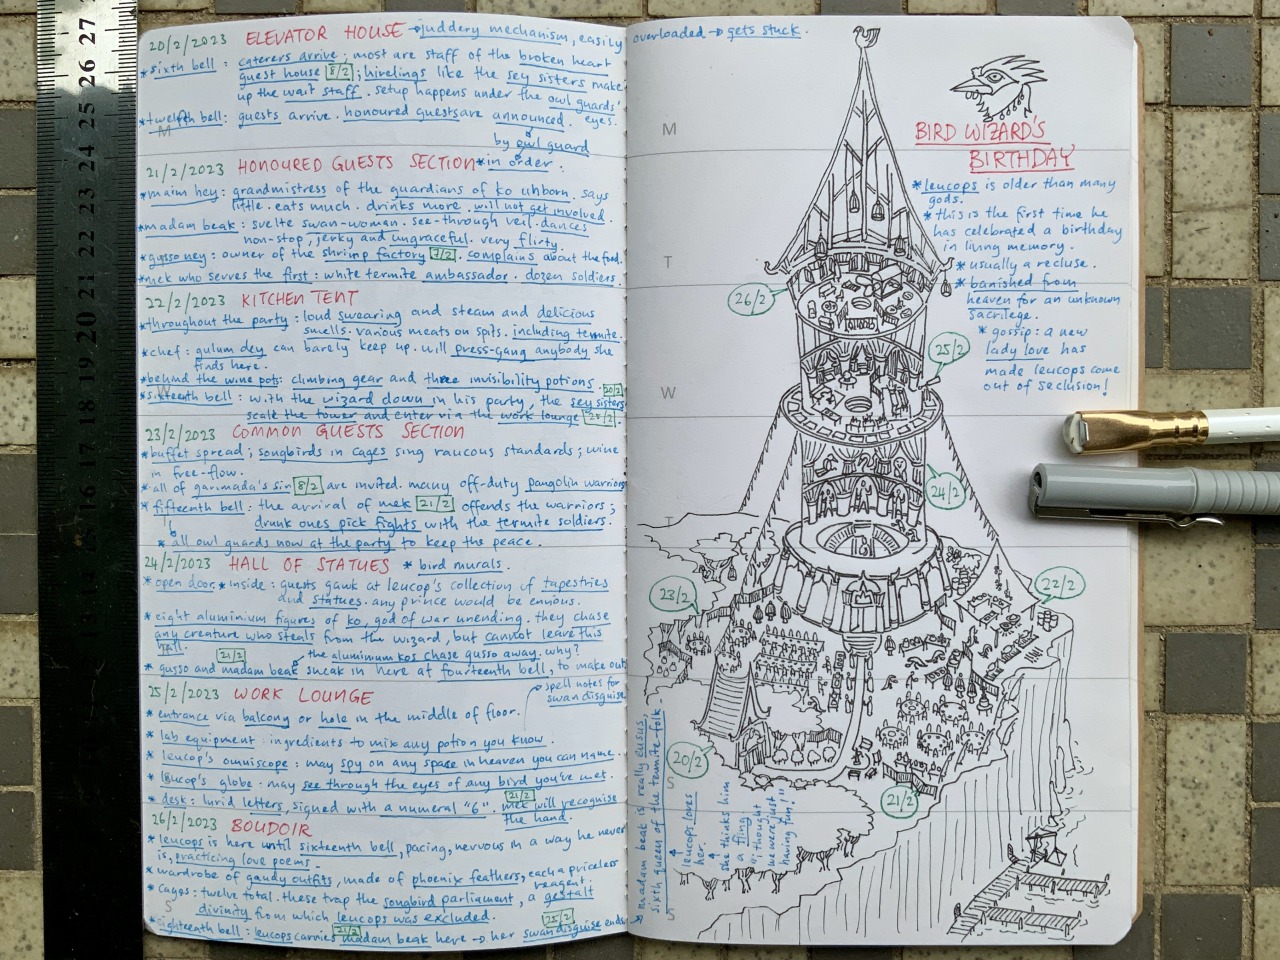 20/2/2023 ELEVATOR HOUSE → juddery mechanism, easily overloaded → gets stuck.
* sixth bell : caterers arrive; most are staff of the broken heart
guest house 8/2; hirelings like the sey sisters make
up the wait staff. setup happens under the owl guards'
eyes.
* twelfth bell: guests arrive. honoured guests are announced.
by owl guard
in order.
21/2/2023 HONOURED GUESTS SECTION
* maim hey: grandmistress of the guardians of ko unborn. says
little. eats much. drinks more. will not get involved.
* madam beak: svelte swan-woman. see-through veil. dances
non-stop, jerky and ungraceful. very flirty.
* gusso ney: owner of the shrimp factory 7/2. complains about the food.
* mek who serves the first: white termite ambassador. dozen soldiers.
22/2/2023 KITCHEN TENT
* throughout the party: loud swearing and steam and delicious
smells. various meats on spits. including termite.
* chef: gulum dey can barely keep up. will press-gang anybody she
finds here.
* behind the wine pots: climbing gear and three invisibility potions. 20/2
* sixteenth bell: with the wizard down in his party, the sey sisters
scale the tower and enter via the work lounge 25/2.
23/2/2023 COMMON GUESTS SECTION
* buffet spread; songbirds in cages sing raucous standards; wine
in free-flow.
* all of garimada's sin 8/2 are invited. many off-duty pangolin warriors
* fifteenth bell: the arrival of mek 21/2 offends the warriors;
drunk ones pick fights with the termite soldiers.
* all owl guards now at the party to keep the peace.
24/2/2023 HALL OF STATUES * bird murals.
* open door. * inside: guests gawk at leucop's collection of tapestries
and statues. any prince would be envious.
* eight aluminium figures of ko, god of war unending. they chase
any creature who steals from the wizard, but cannot leave this
hall.
21/2 the aluminium kos chase gusso away. why?
* gusso and madam beak sneak in here at fourteenth bell, to make out
25/2/2023 WORK LOUNGE
spell notes for
swan disguise
* entrance via balcony or hole in the middle of floor.
* lab equipment: ingredients to mix any potion you know.
* leucop's omniscope: may spy on any space in heaven you can name.
* leucop's globe: may see through the eyes of any bird you've met.
21/2
* desk: lurid letters, signed with a numeral "6". mek will recognise
the hand.
26/2/2023 BOUDOIR
* leucops is here until sixteenth bell, pacing, nervous in a way he never
is, practicing love poems.
* wardrobe of gaudy outfits, made of phoenix feathers, each a priceless
reagent.
* cages: twelve total. these trap the songbird parliament, a gestalt
divinity from which leucops was excluded.
21/2 25/2
* eighteenth bell: leucops carries madam beak here → her swan disguise ends
M
T
W
T
S
S
M
W
S
BIRD WIZARD'S
BIRTHDAY
* leucops is older than many
gods.
* this is the first time he
has celebrated a birthday
in living memory.
* usually a recluse.
* banished from
heaven for an unknown
sacrilege.
* gossip: a new
lady love has
made leucops come
out of seclusion!
26/2
25/2
24/2
23/2
22/2
20/2
21/2
→ madam beak is really cusus,
sixth queen of the termite-folk.
leucops loves
her.
she thinks him
a fling
"i thought
we were just
having fun!"
27
26
25
24
23
22
21
20
19
18
17
16
15
14
13